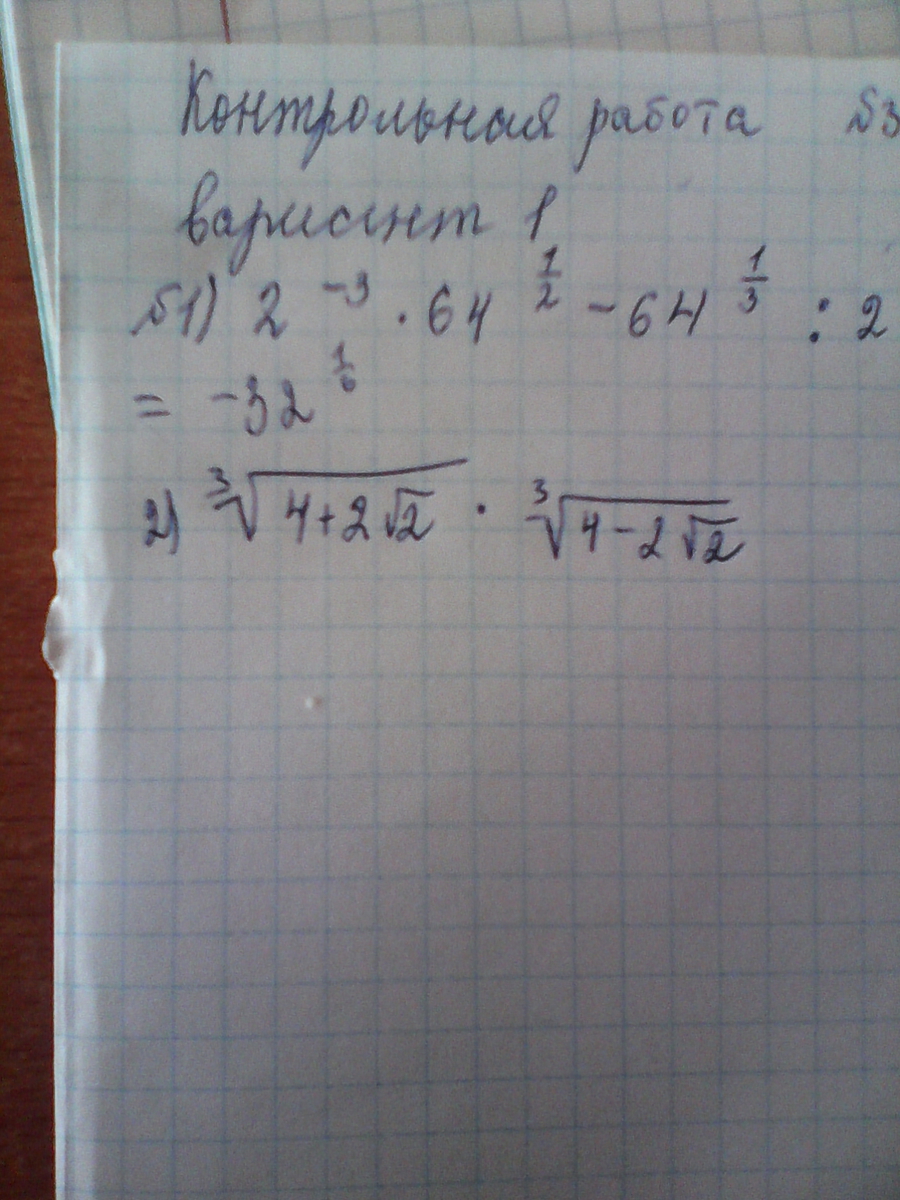 Контрольная работа №3
вариант 1
№1) 2^{-3} · 64^{\frac{1}{2}} - 64^{\frac{1}{3}} : 2
= -32^{\frac{1}{6}}
2) \sqrt[3]{4+2\sqrt{2}} · \sqrt[3]{4-2\sqrt{2}}